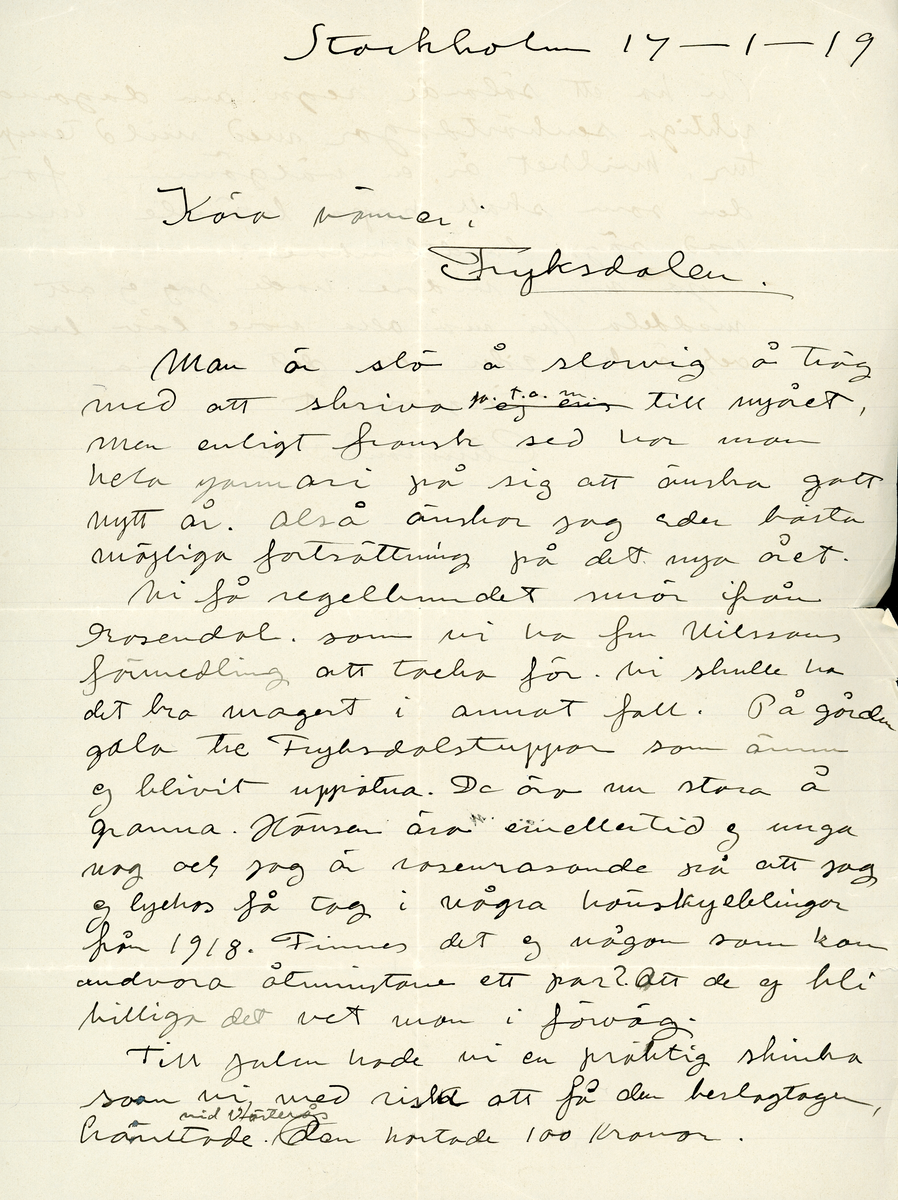 Stockholm 17-1-19
Kära vänner i
Fryksdalen.
Man är slö å slarvig å trög
med att skriva p. t. a. m. till nyåret,
men enligt fransk sed har man
hela januari på sig att önska gott
nytt år. Alså önskar jag eder bästa
möjliga fortsättning på det nya året.
Vi få regelbundet smör ifrån
Rosendal. som vi ha fru Nilssons
förmedling att tacka för. Vi skulle ha
det bra magert i annat fall. På gården
gala tre Fryksdalstuppar som ännu
ej blivit uppätna. De äro nu stora å
granna. Hönsen äro emellertid ej unga
nog och jag är rosenrasande på att jag
ej lyckas få tag i några hönskycklingar
från 1918. Finnes det ej någon som kan
undvara åtminstone ett par? Att de ej bli
billiga det vet man i förväg.
Till julen hade vi en präktig skinka
som vi, med risk att få den beslagtagen,
vid Västerås
hämtade. Den kostade 100 Kronor.